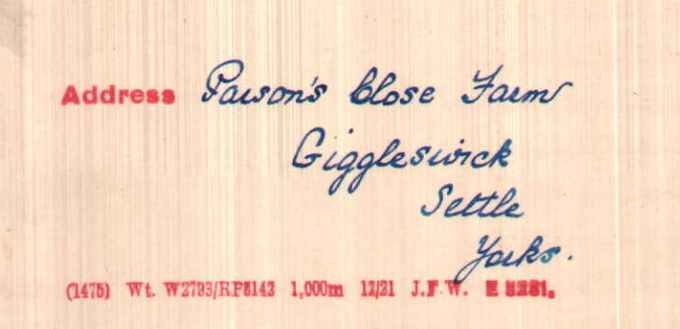 Address Parson's Close Farm
Giggleswick
Settle
Yorks.
(1475) Wt. W2793/RP8142 1,000m 12/21 J.F.W.